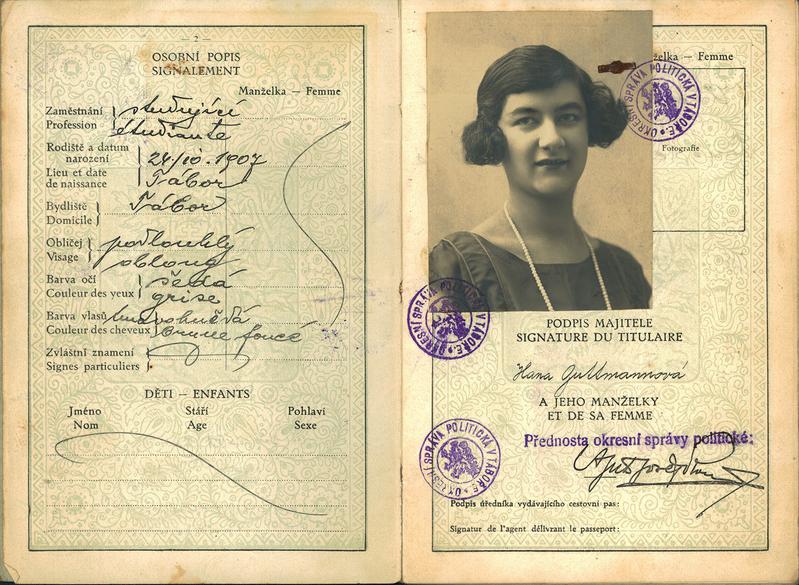 — 2 —
OSOBNÍ POPIS
SIGNALEMENT
Manželka — Femme
Zaměstnání
Profession
studující
étudiante
Rodiště a datum
narození
Lieu et date
de naissance
24/10.1907
Tábor
Bydliště
Domicile
Tábor
Obličej
Visage
podlouhlý
oblong
Barva očí
Couleur des yeux
šedá
grise
Barva vlasů
Couleur des cheveux
tmavohnědá
brune foncé
Zvláštní znamení
Signes particuliers
DĚTI — ENFANTS
Jméno Stáří Pohlaví
Nom Age Sexe
zelka — Femme
Fotografie
OKRESNÍ SPRÁVA POLITICKÁ V TÁBOŘE
OKRESNÍ SPRÁVA POLITICKÁ V TÁBOŘE
PODPIS MAJITELE
SIGNATURE DU TITULAIRE
Hana Guttmannová
A JEHO MANŽELKY
ET DE SA FEMME
OKRESNÍ SPRÁVA POLITICKÁ V TÁBOŘE
Přednosta okresní správy politické:
Podpis úředníka vydávajícího cestovní pas:
Signatur de l'agent délivrant le passeport: